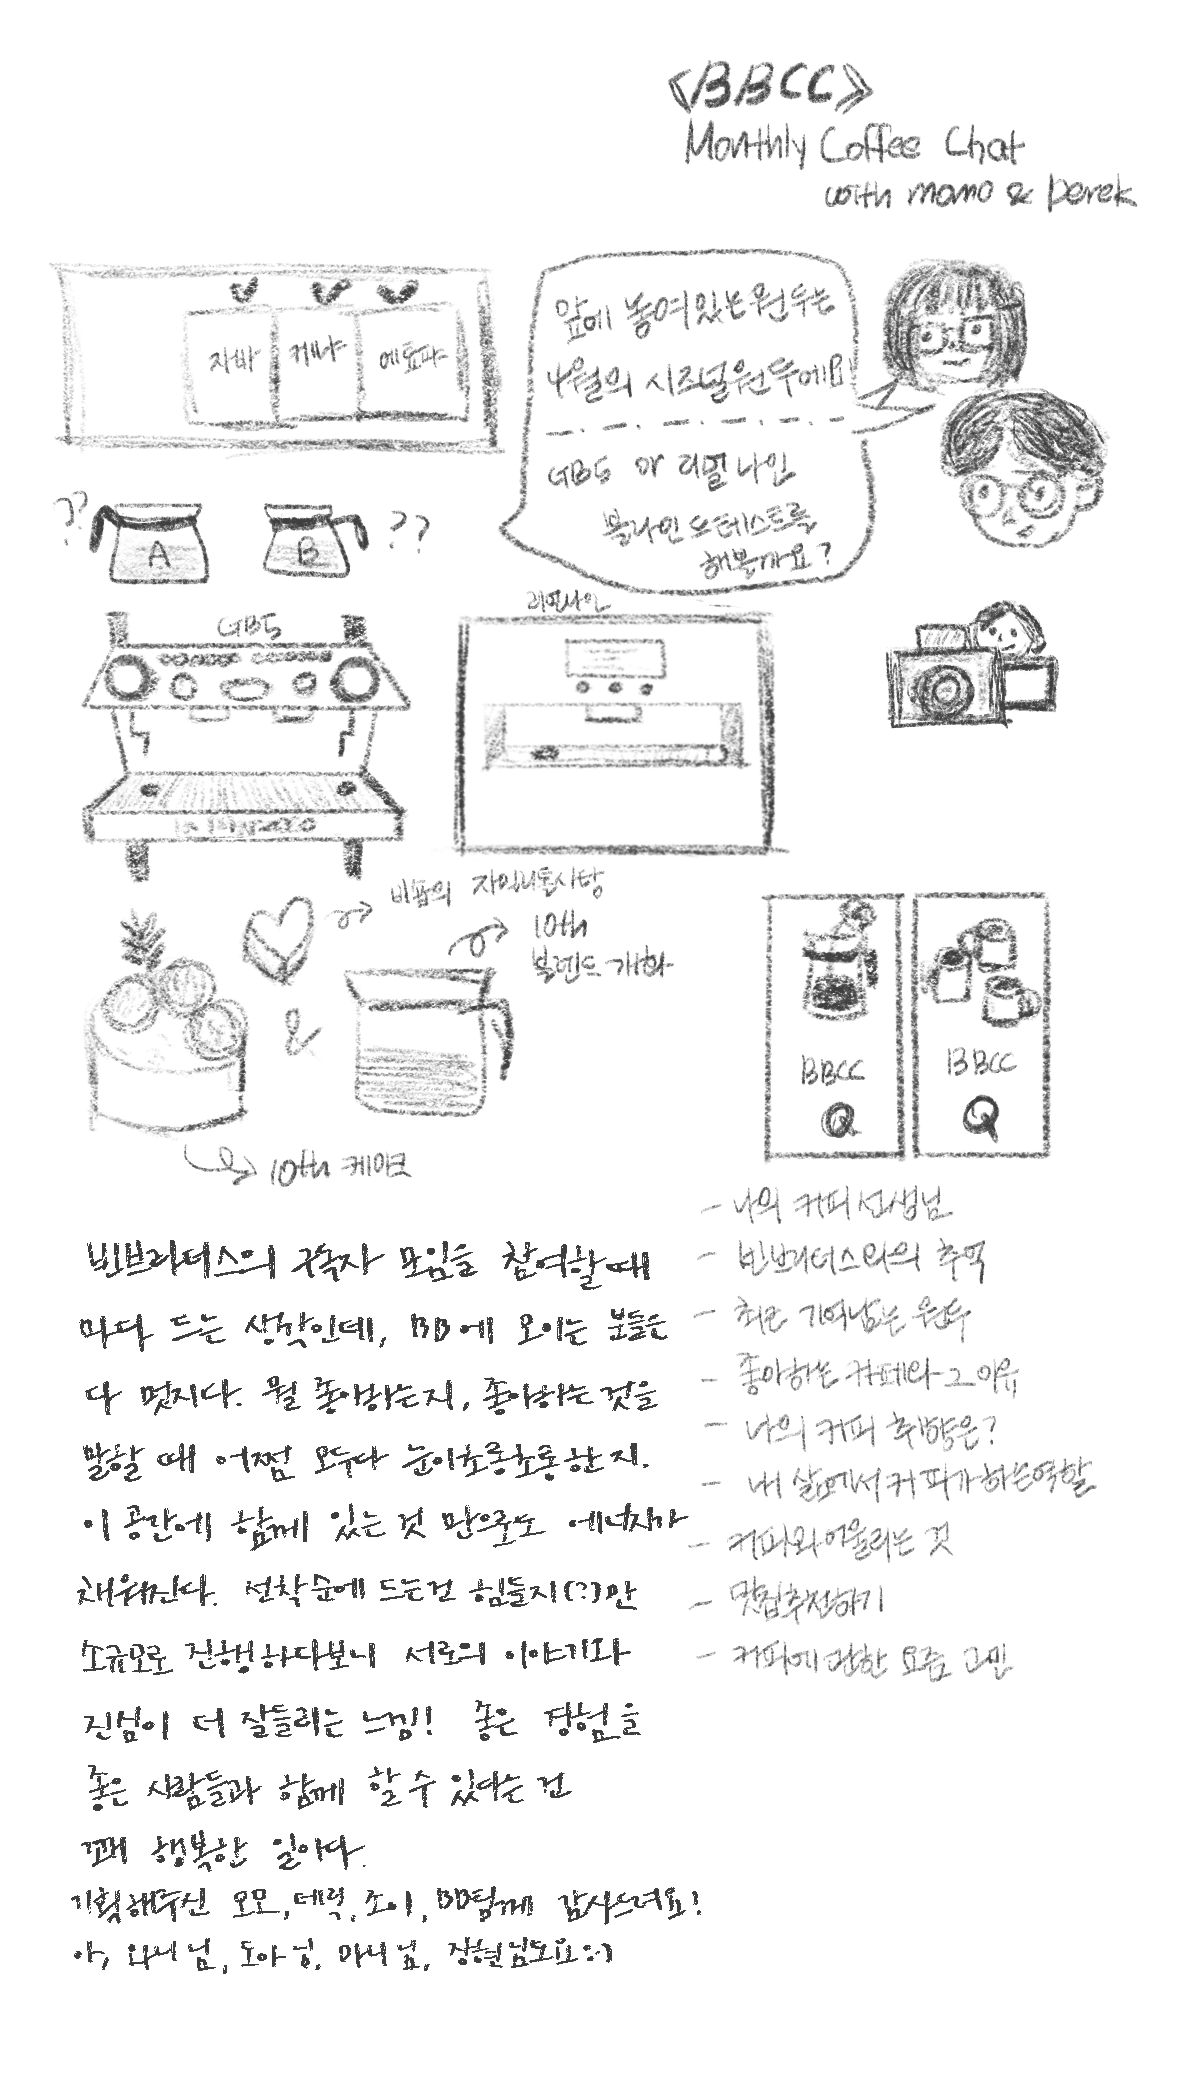 <BBCC>
Monthly Coffee Chat
with momo & Derek
자바
케냐
에티오피아
앞에 놓여있는 원두는
4월의 시즈널원두에요!
GB5 or 리멜나인
블라인드테스트를
해볼까요?
?? A
B ??
GB5
리멜나인
LA MARZOCCO
비품의 자일리톨사탕
10th
블렌드 개화
&
10th 케이크
BBCC
Q
BBCC
Q
- 나의 커피 선생님
- 빈브라더스와의 추억
- 최근 기억남는 원두
- 좋아하는 카페와 그 이유
- 나의 커피 취향은?
- 내 삶에서 커피가하는역할
- 커피와 어울리는 것
- 맛집추천하기
- 커피에 관한 요즘 고민
빈브라더스의 구독자 모임을 참여할 때
마다 드는 생각인데, BB에 모이는 분들은
다 멋지다. 뭘 좋아하는지, 좋아하는 것을
말할 때 어쩜 모두다 눈이초롱초롱한지.
이 공간에 함께 있는 것 만으로도 에너지가
채워진다. 선착순에 드는건 힘들지(?)만
소규모로 진행하다보니 서로의 이야기와
진심이 더 잘들리는 느낌! 좋은 경험을
좋은 사람들과 함께 할 수 있다는 건
꽤 행복한 일이다.
기획해주신 모모, 데릭, 조이, BB팀께 감사드려요!
아, 와니님, 도아님, 마니님, 장현님도요:)